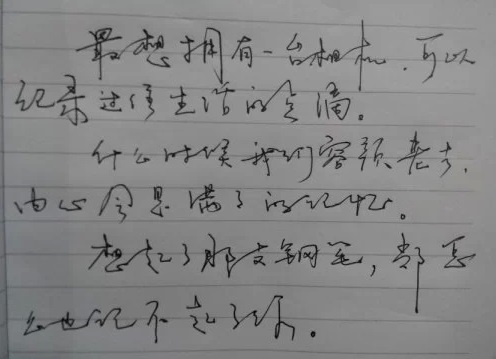 最想拥有一台相机,可以
记录过往生活的点滴。
什么时候我们容颜老去,
内心会是满了的记忆。
想起了那支钢笔,却怎
么也记不起了你。